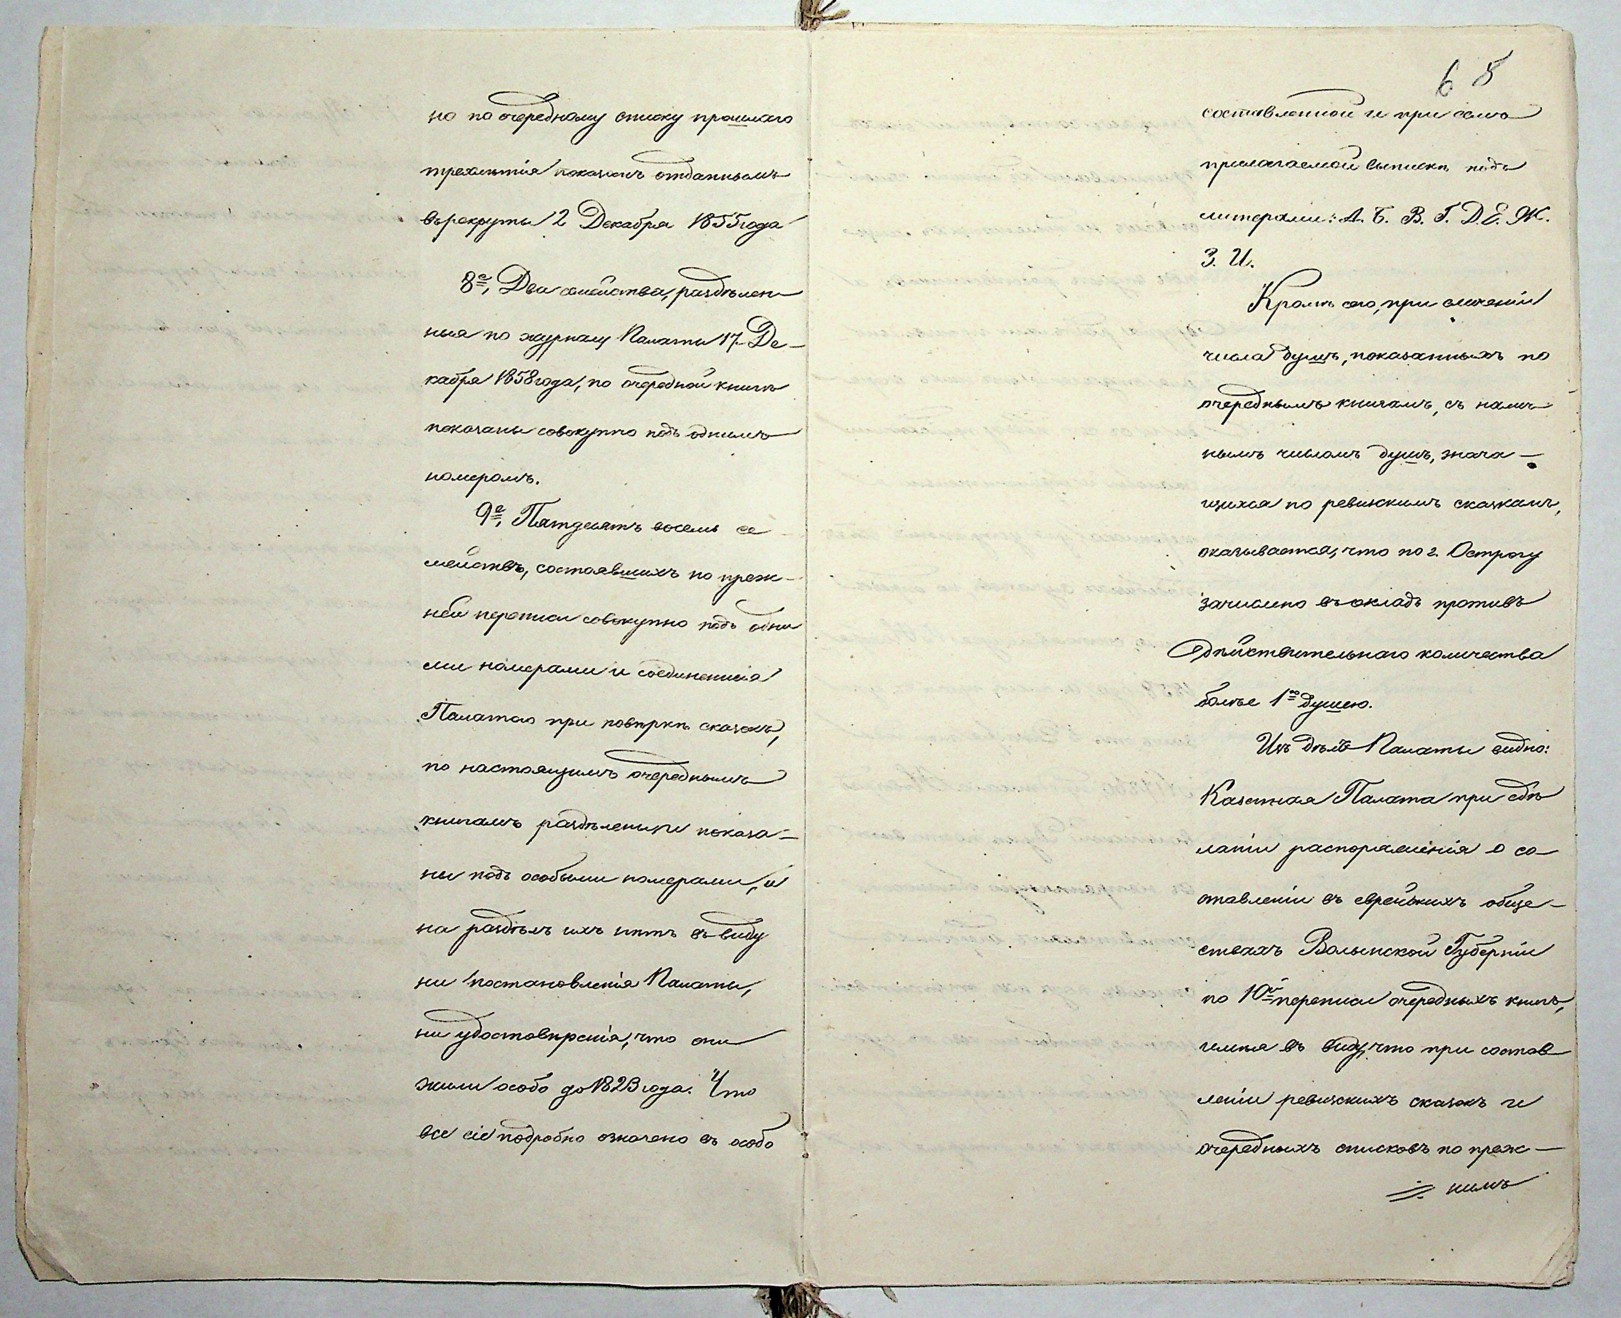 но по очередному списку прошлаго
трехлетія показанъ отданнымъ
въ рекруты 2 Декабря 1855 года
8е, Два семейства, раздѣлен
ныя по журналу Палаты 17 Де-
кабря 1858 года, по очередной книгѣ
показаны совокупно подъ однимъ
номеромъ.
9е, Пятдесятъ восемь се
мействъ, состоявшихъ по преж-
ней переписи совокупно подъ одни
ми номерами и соединенныя
Палатою при повѣркѣ сказокъ,
по настоящимъ очереднымъ
книгамъ раздѣлены и показа-
ны подъ особыми номерами, и
на раздѣлъ ихъ нѣтъ въ виду
ни постановленія Палаты,
ни удостовѣренія, что они
жили особо до 1823 года. Что
все сіе подробно означено въ особо
6 8
составленной и при семъ
прилагаемой выпискѣ подъ
литерами: А. Б. В. Г. Д. Е. Ж.
З. И.
Кромѣ сего, при сличеніи
числа душъ, показанныхъ по
очереднымъ книгамъ, съ налич
нымъ числомъ душъ, знача-
щихся по ревизскимъ сказкамъ,
оказывается, что по г. Острогу
зачислено въ окладъ противъ
дѣйствительнаго количества
болѣе 1ю душею.
Изъ дѣлъ Палаты видно:
Казенная Палата при сдѣ
ланіи распоряженія о со-
ставленіи въ еврейскихъ обще-
ствахъ Волынской Губерніи
по 10й переписи очередныхъ книгъ,
имѣя въ виду, что при состав
леніи ревизскихъ сказокъ и
очередныхъ списковъ по преж-
нимъ